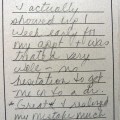 I actually
showed up 1
week early for
my appt & was
treated very
well - no
hesitation to get
me in to a dr.
Great & relieved
my mistake